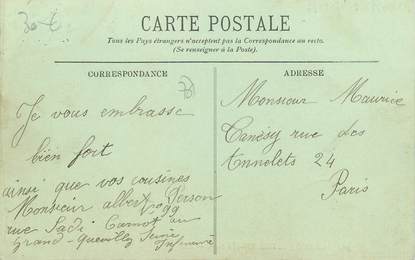 30 €
CARTE POSTALE
Tous les Pays étrangers n'acceptent pas la Correspondance au recto.
(Se renseigner à la Poste).
CORRESPONDANCE
Je vous embrasse
bien fort
ainsi que vos cousines
Monsieur albert Person
rue Sadi Carnot 99
Grand-Quevilly Seine
Inferieure
ADRESSE
Monsieur Maurice
rue des
Annelets 24
Paris